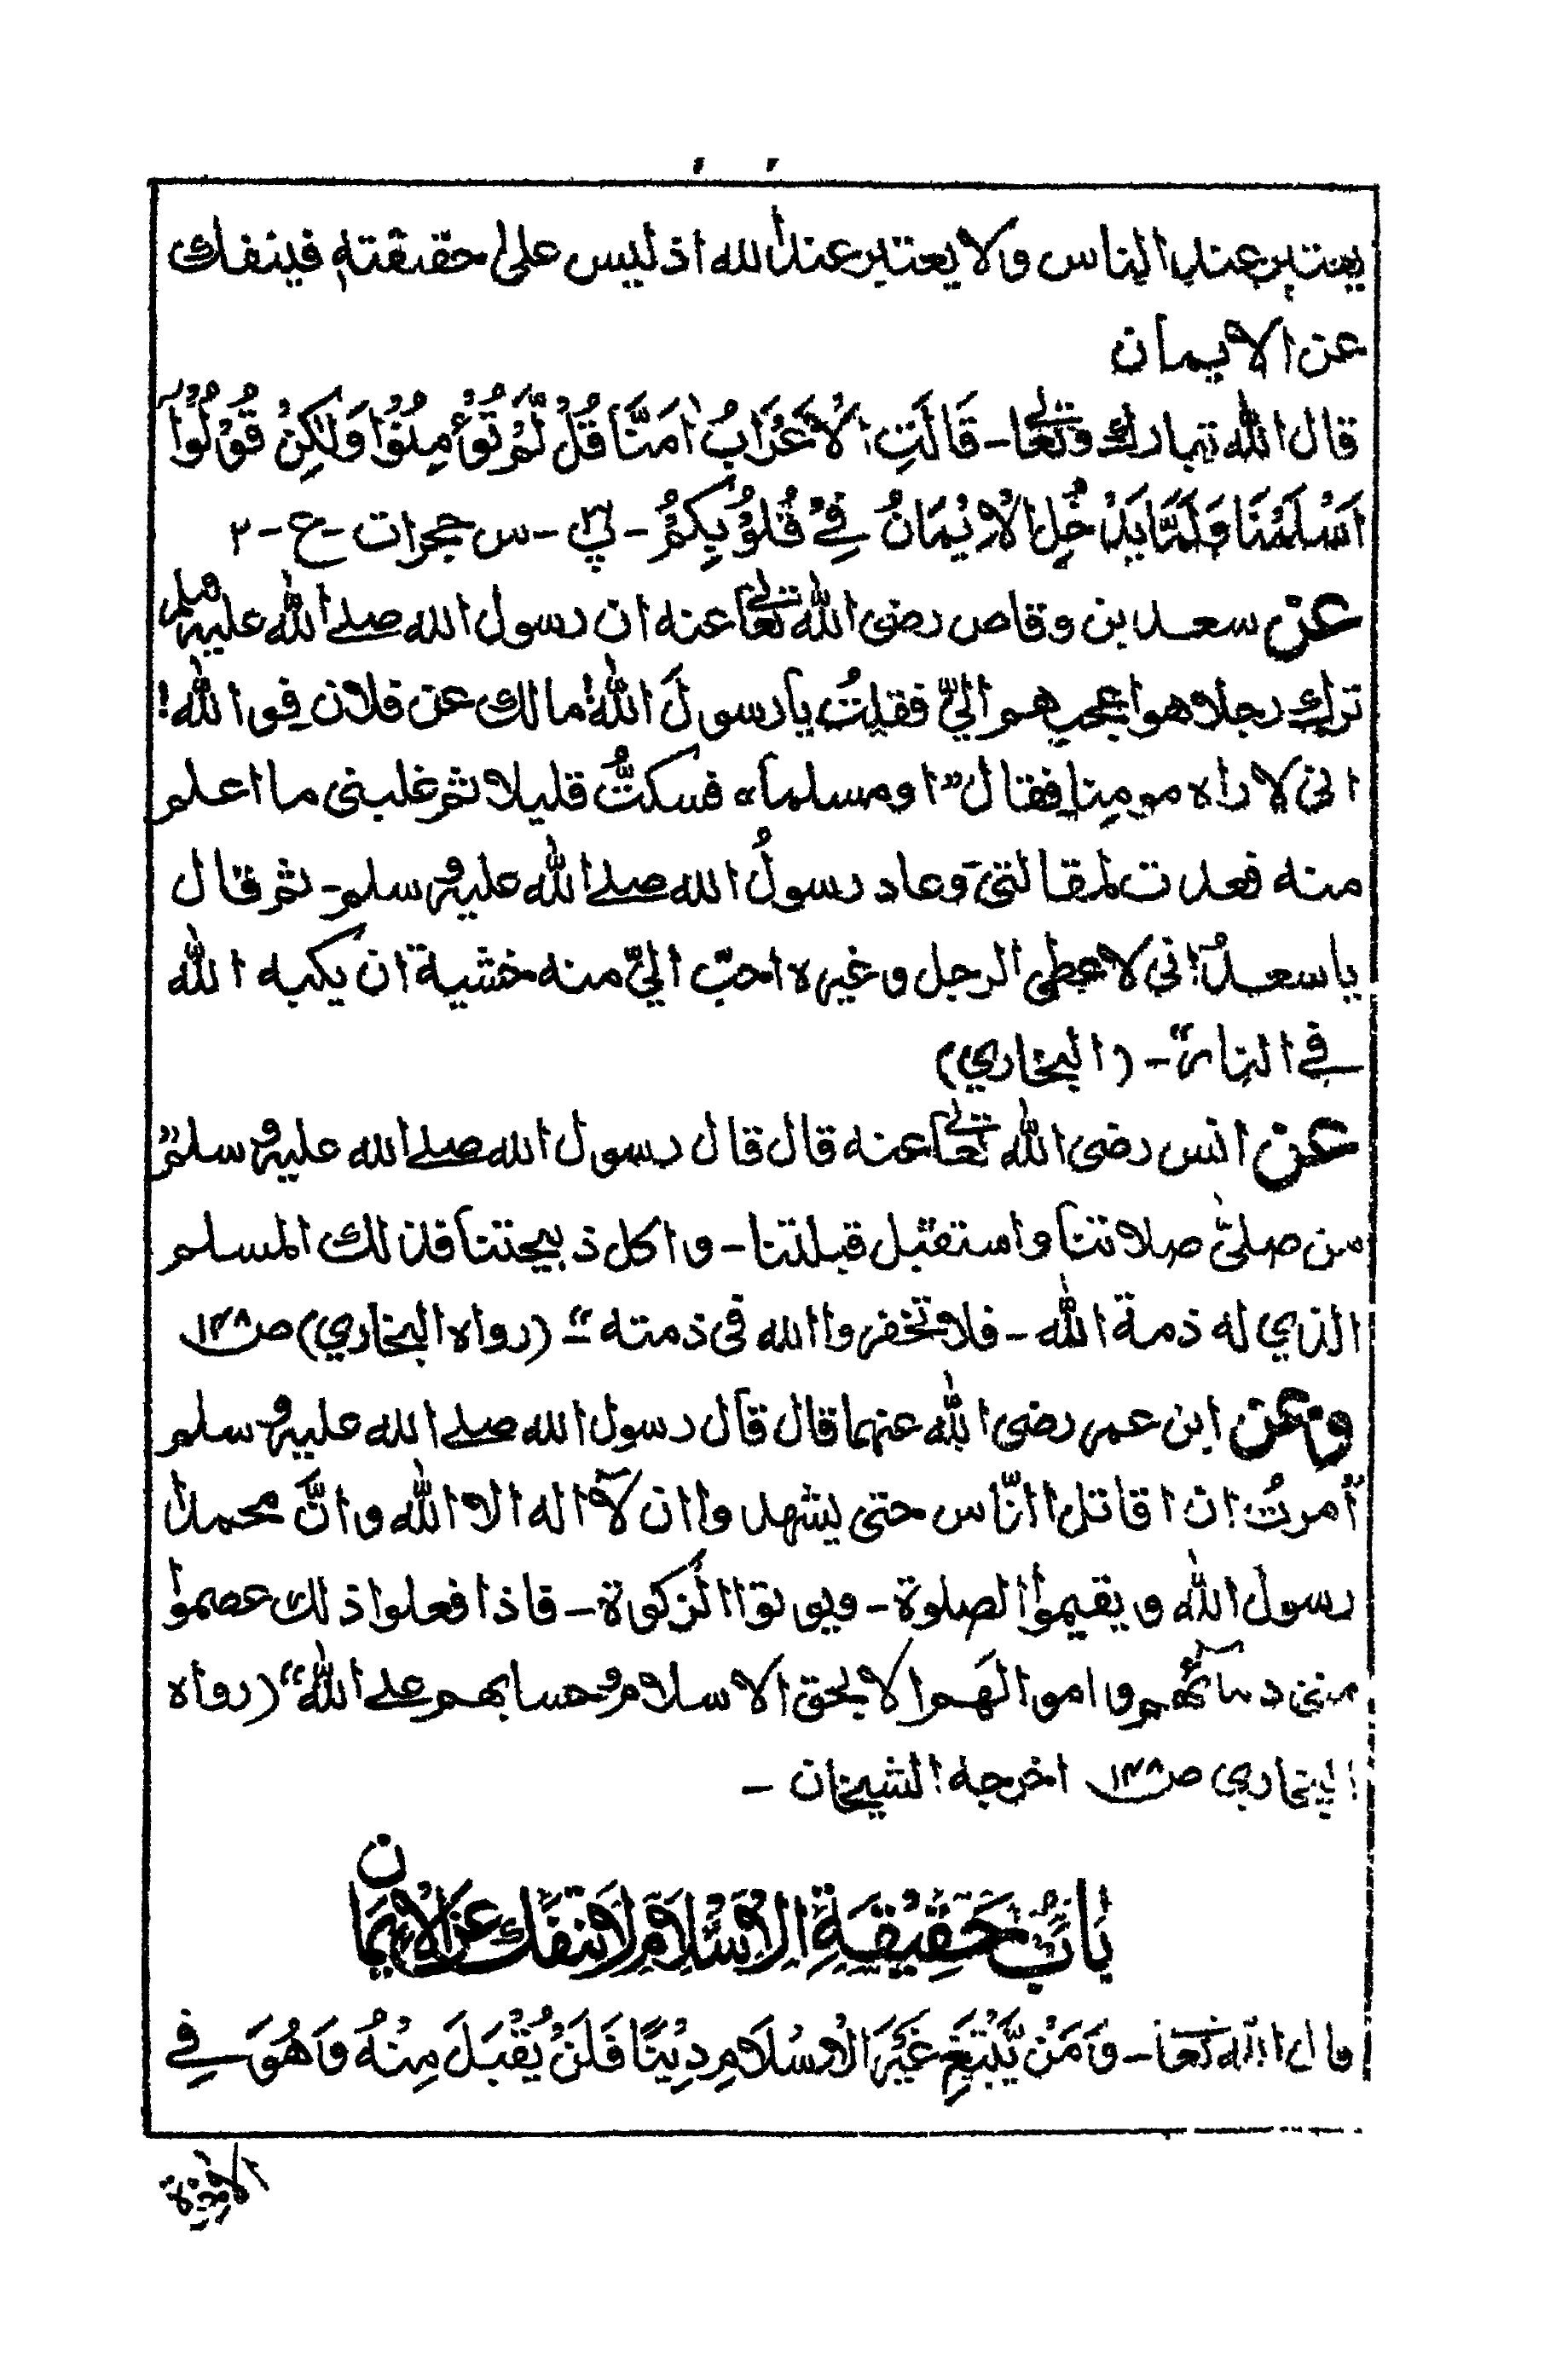 يعتبر عند الناس ولا يعتبر عند الله اذ ليس على حقيقته فينفك
عن الايمان
قال الله تبارك وتعالى - قَالَتِ الْاَعْرَابُ اٰمَنَّا قُلْ لَّمْ تُؤْمِنُوْا وَلٰكِنْ قُوْلُوْٓا
اَسْلَمْنَا وَلَمَّا يَدْخُلِ الْاِيْمَانُ فِيْ قُلُوْبِكُمْ - پ٢٦ - س حجرات - ع - ٢
عن سعد بن وقاص رضى الله تعالى عنه ان رسول الله صلى الله عليه وسلم
ترك رجلا هو اعجبهم اليّ فقلتُ يا رسولَ الله! مالك عن فلان فوالله!
انى لاراه مومنا فقال "او مسلما" فسكتُّ قليلا ثم غلبنى ما اعلم
منه فعدت لمقالتى وعاد رسولُ الله صلے الله عليه وسلم - ثم قال
يا سعدُ! انى لاعطى الرجل وغيره احبّ اليّ منه خشية ان يكبه الله
فے النار" - (البخاري)
عن انس رضى الله تعالى عنه قال قال رسول الله صلے الله عليه وسلم "
من صلىّ صلاتنا واستقبل قبلتنا - واكل ذبيحتنا فذلك المسلم
الذي له ذمة الله - فلا تخفروا الله فى ذمته" - (رواه البخاري) ص١٣٨
وعن ابن عمر رضى الله عنهما قال قال رسول الله صلے الله عليه وسلم
"اُمرتُ ان اقاتل االنّاس حتى يشهدوا ان لآ اله الا الله وانَّ محمدا
رسول الله ويقيموا الصلوة - ويوتوا الزكوة - فاذا فعلوا ذلك عصموا
منى دمآئهم واموالهم الا بحق الاسلام وحسابهم علے الله" (رواه
البخاري ص١٣٨ اخرجه الشيخان -
بَابٌ حَقِيْقَةِ الْاِسْلَامِ لَا تنفَك عَنِ الْاِيْمَان
قال الله تعالى - وَمَنْ يَّبْتَغِ غَيْرَ الْاِسْلَامِ دِيْنًا فَلَنْ يُقْبَلَ مِنْهُ وَهُوَ فِے
الاٰخرة